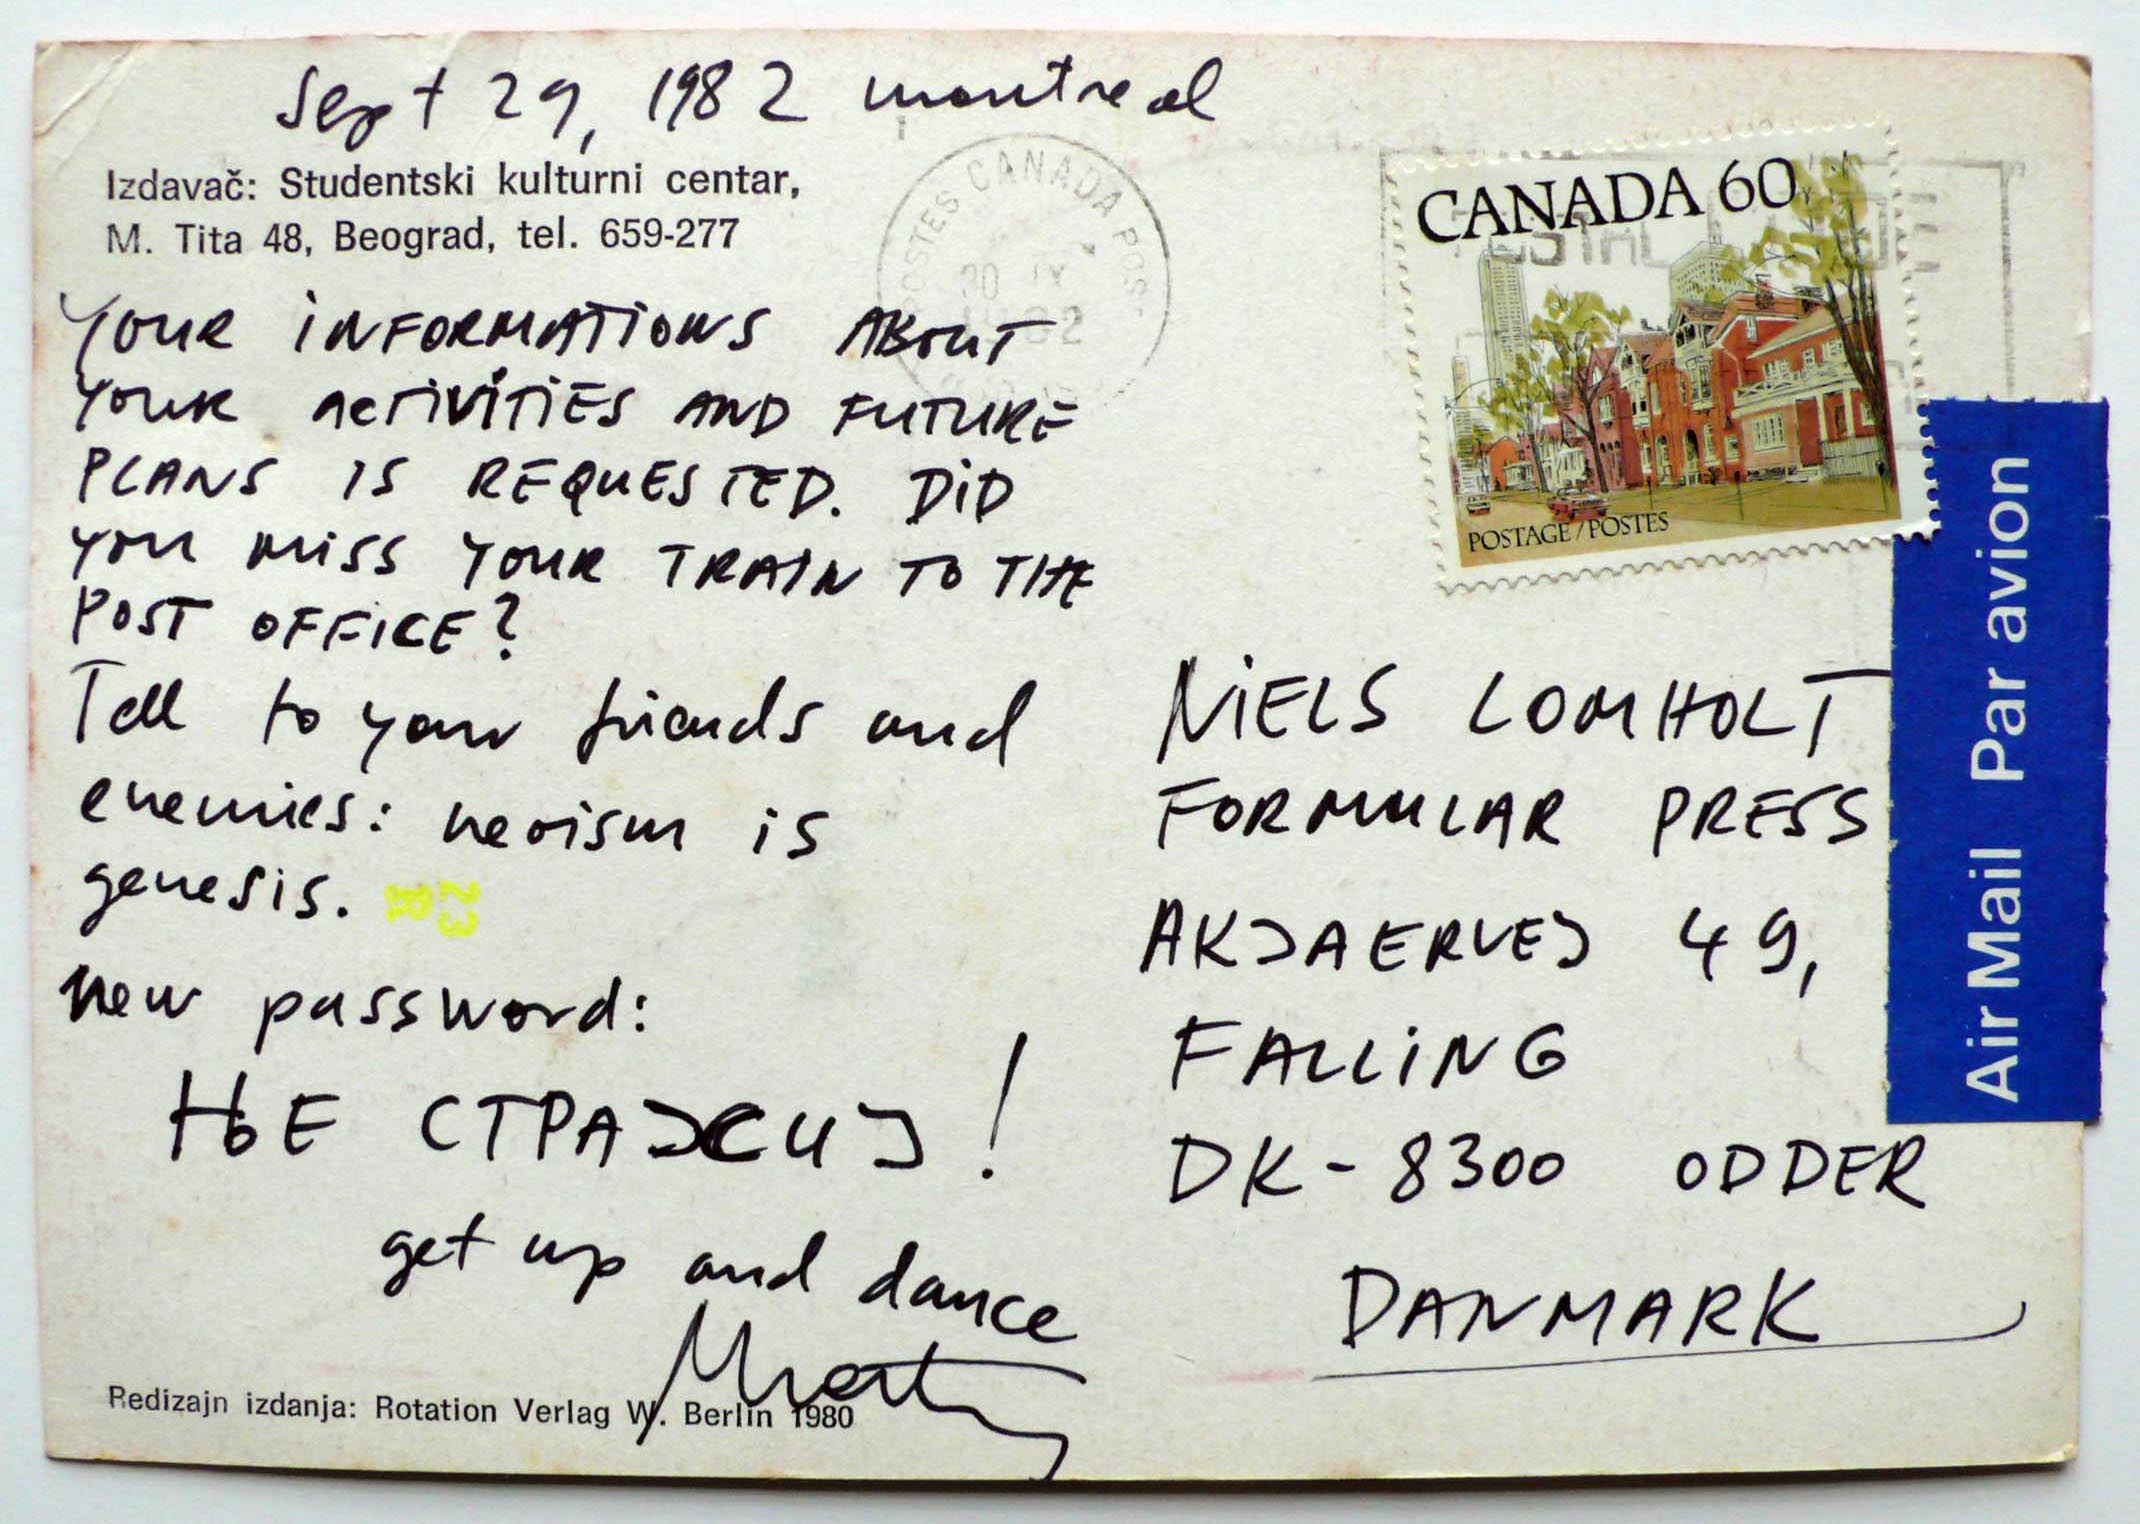 Sept 29, 1982 montreal
Izdavač: Studentski kulturni centar,
M. Tita 48, Beograd, tel. 659-277
POSTES CANADA POST
30 IX
1982
CANADA 60
POSTAL
POSTAGE / POSTES
YOUR INFORMATIONS ABOUT
YOUR ACTIVITIES AND FUTURE
PLANS IS REQUESTED. DID
YOU MISS YOUR TRAIN TO THE
POST OFFICE?
Tell to your friends and
enemies: neoism is
genesis.
new password:
ЊЕ СТРАЈСИЈ!
get up and dance
Redizajn izdanja: Rotation Verlag W. Berlin 1980
NIELS LOMHOLT
FORMULAR PRESS
AKJAERVEJ 49,
FALLING
DK-8300 ODDER
DANMARK
Air Mail Par avion